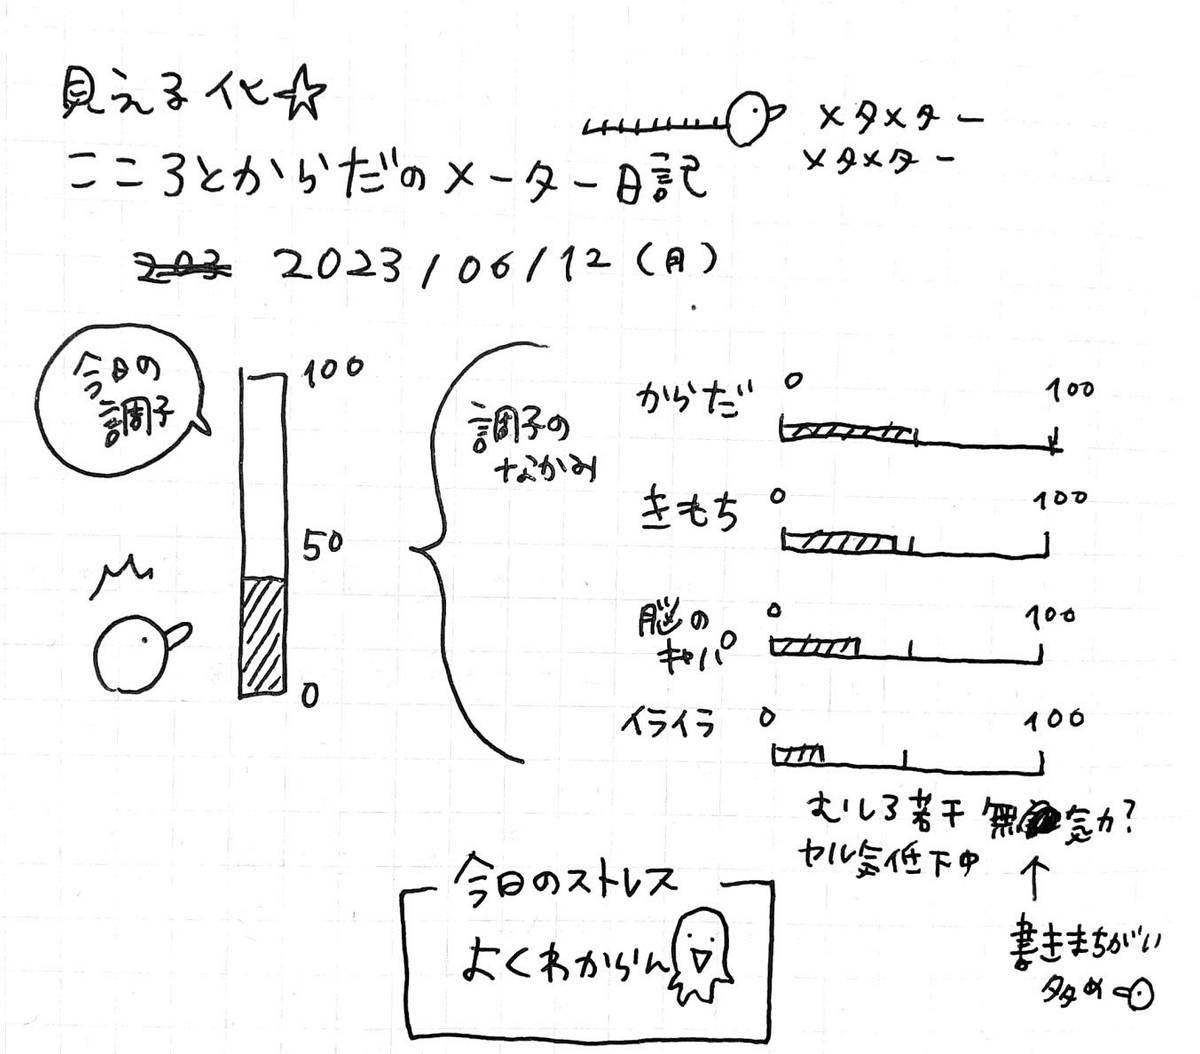 見える化☆
メタメター
メタメター
こころとからだのメーター日記
203 2023/06/12(月)
今日の
調子
100
50
0
調子の
なかみ
からだ 0 100
きもち 0 100
脳の
キャパ 0 100
イライラ 0 100
むしろ若干無気力?
ヤル気低下中
↑
書きまちがい
多め
今日のストレス
よくわからん